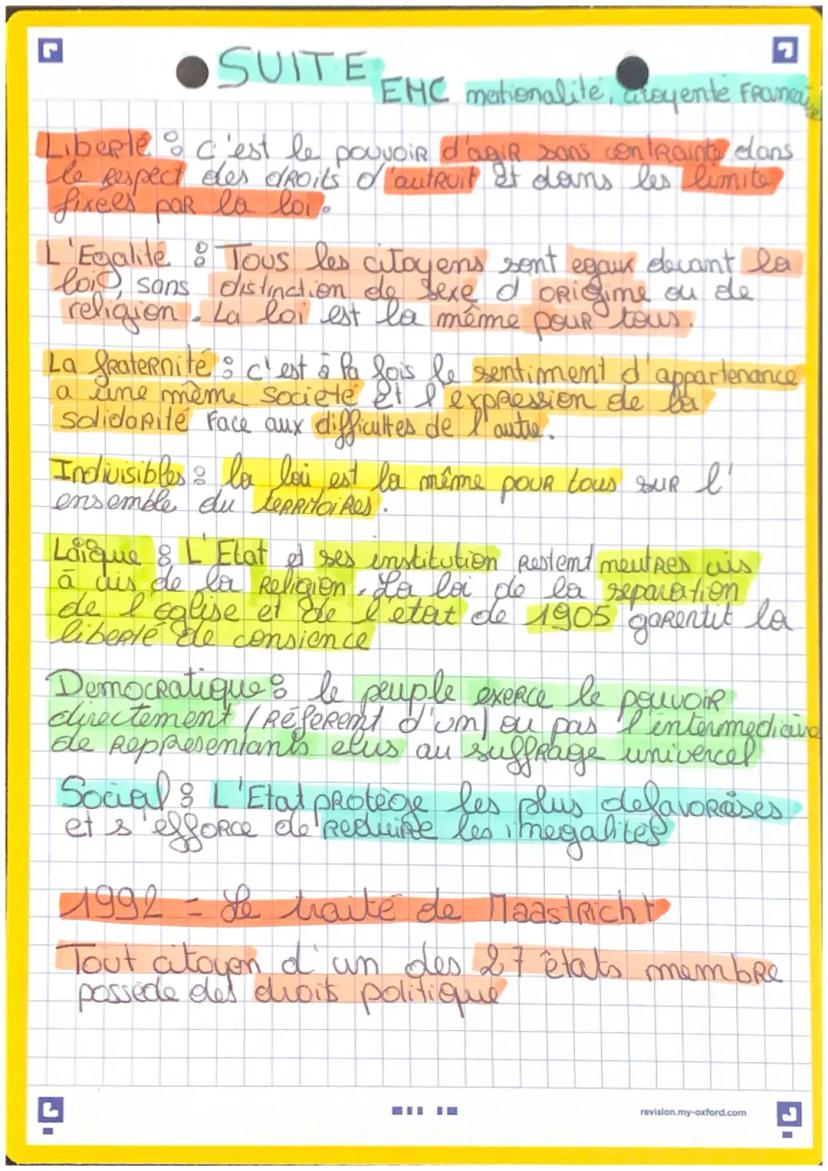 SUITE
EMC nationalité, citoyenté Française
Liberté : c'est le pouvoir d'agir sans contrainte dans
le respect des droits d'autruit et dans les limite
fixées par la loi.
L'Egalité : Tous les citoyens sont egaux devant la
loi, sans distinction de sexe d origine ou de
religion. La loi est la même pour tous.
La fraternité : c'est à la fois le sentiment d'appartenance
a une même société et l expression de la
solidarité face aux difficultes de l'autre.
Indivisibles : la loi est la même pour tous sur l'
ensemble du territoires.
Laïque : L'Etat et ses institution restent neutres vis
à vis de la religion. La loi de la separation
de l'église et de l'état de 1905 garentit la
liberté de consience
Democratique : le peuple exerce le pouvoir
directement (réferent d'um) ou pas l'intermediaire
de representants elus au suffrage univercel
Social : L'Etat protège les plus defavoraises
et s'efforce de reduire les inegalités
1992 - Le traité de Maastricht
Tout citoyen d'un des 27 états membre
possède des droits politique
revision.my-oxford.com